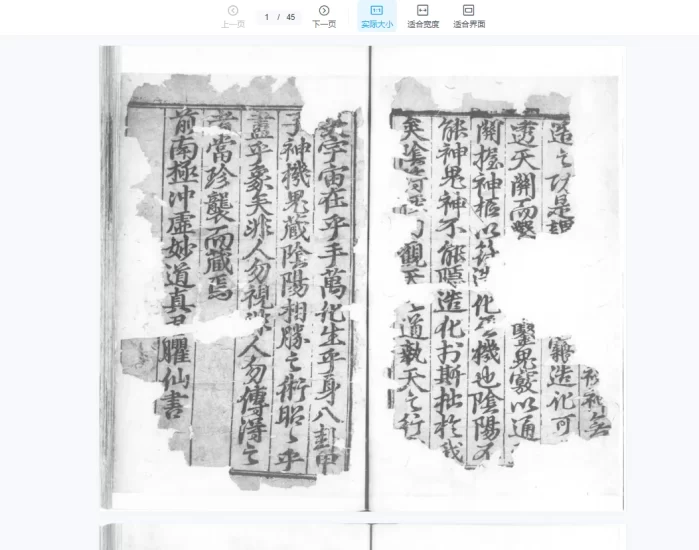 上一页
1 / 45
下一页
实际大小
适合宽度
适合界面
造之功是謂 造化可
透天關而 鑿鬼竅以通
關握神樞以 化 機也陰陽不
能神鬼神不能隱造化於斯拙於我
矣 觀天 道執天之行
宇宙在乎手萬化生乎身八卦甲
子神機鬼藏陰陽相勝之術昭〻乎
盡乎象矣非人勿視非人勿傳得之
者當珍襲而藏焉
前南極沖虛妙道真君臞仙書